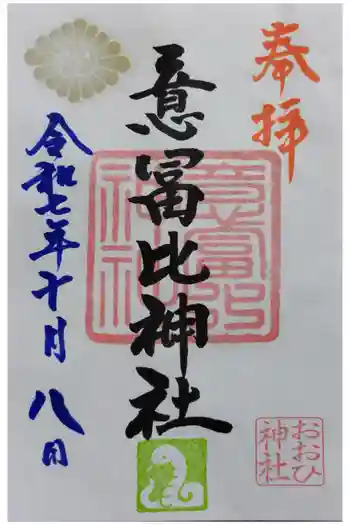 奉拝
意冨比神社
意冨比神社
おおひ
神社
令和七年十月八日